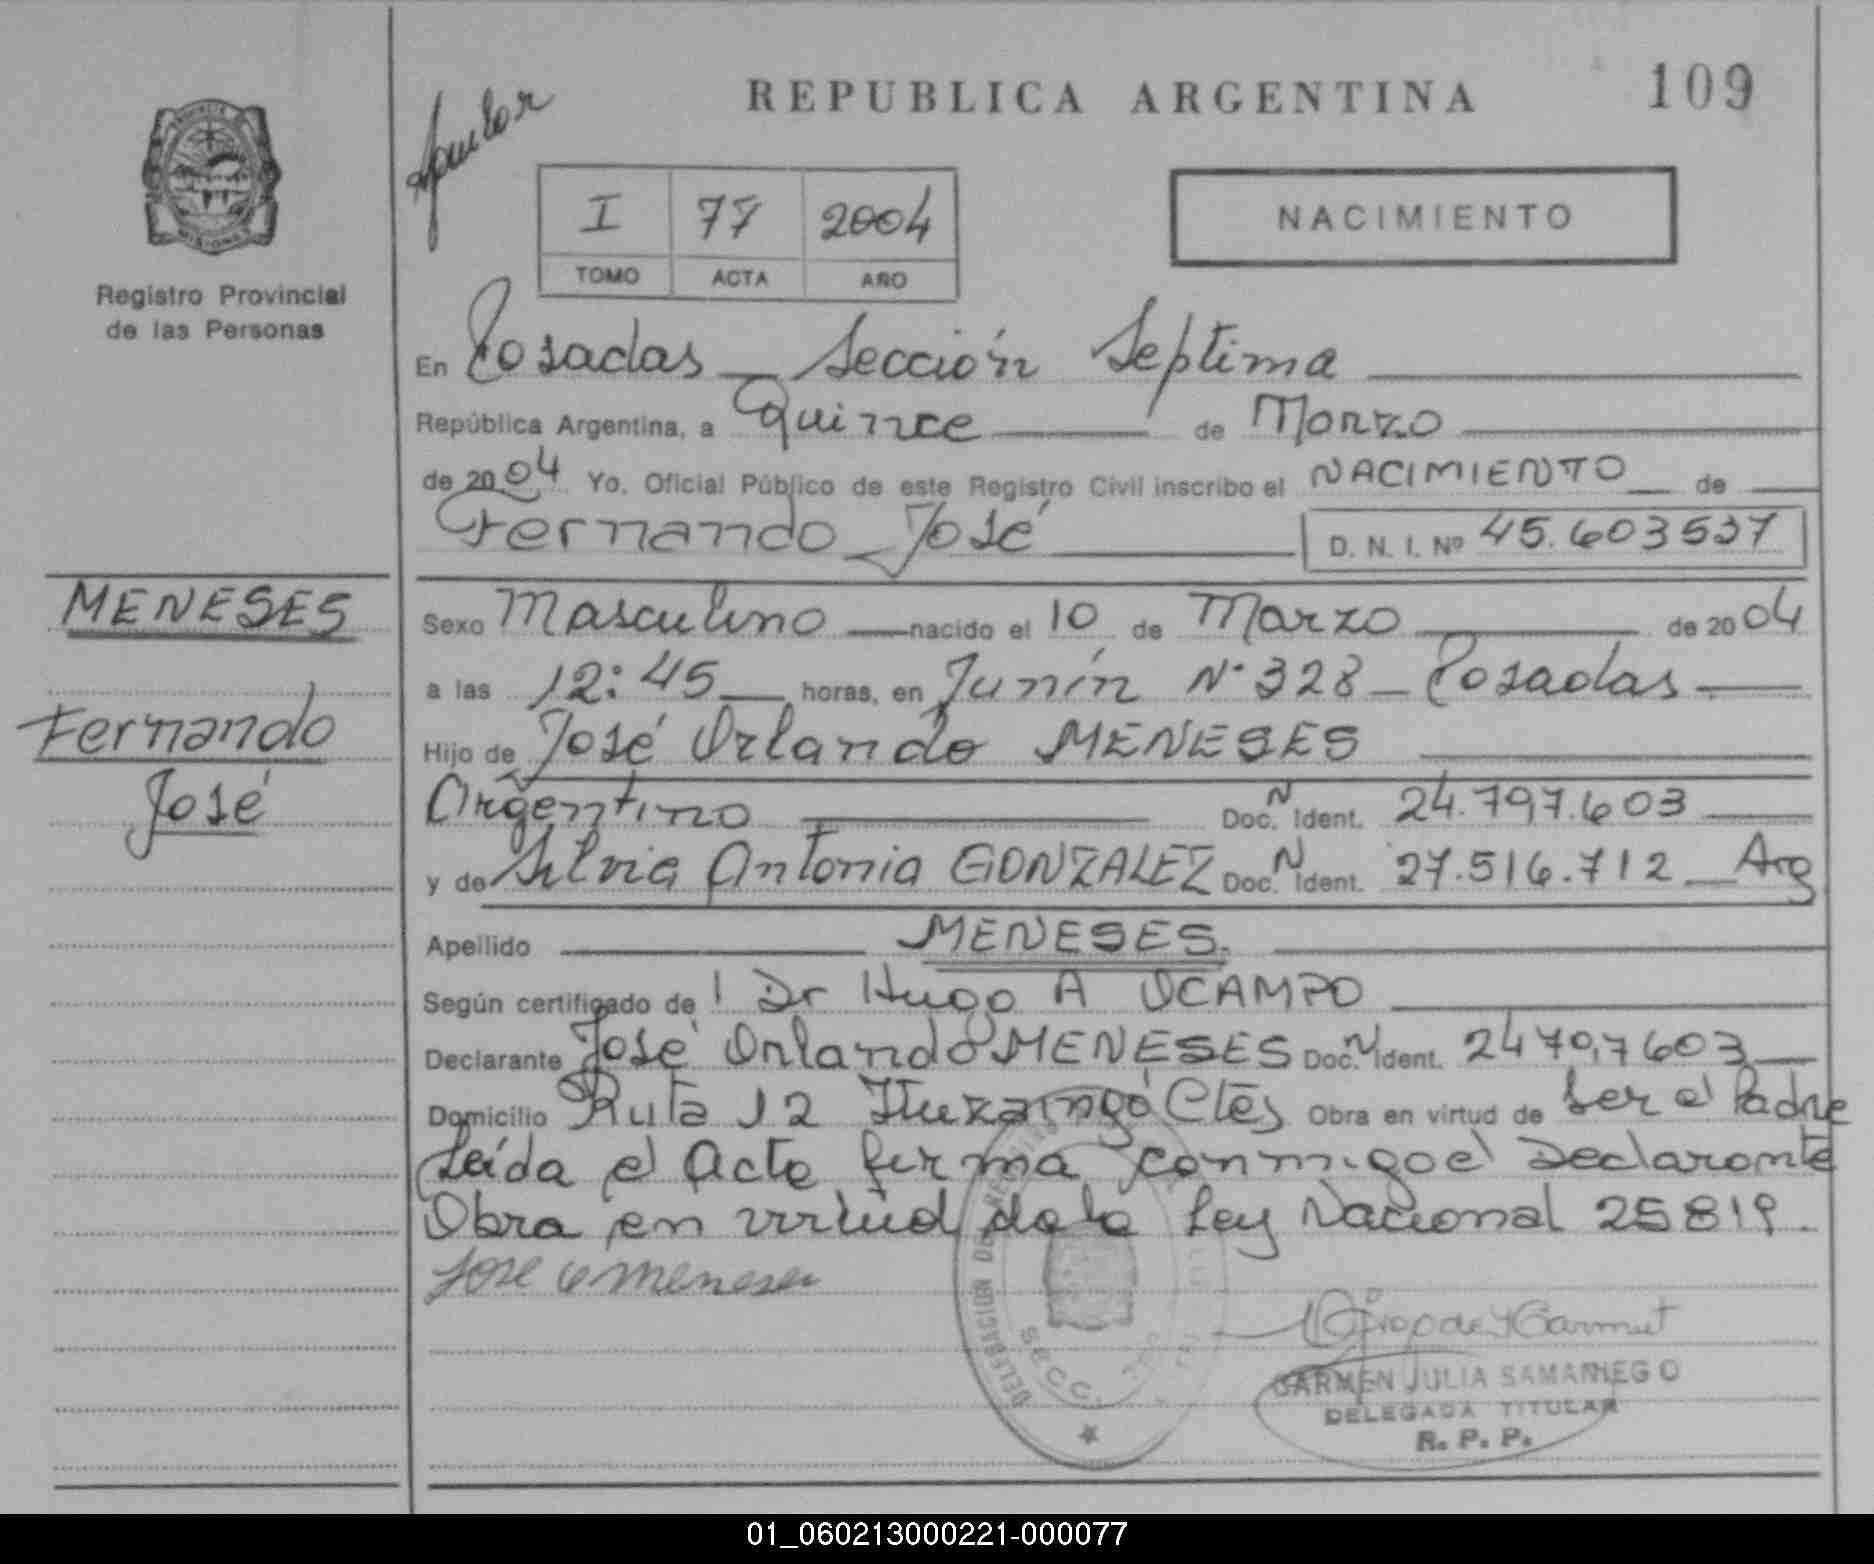 REPUBLICA ARGENTINA
109
PROVINCIA
MISIONES
Registro Provincial
de las Personas
I 77 2004
TOMO ACTA AÑO
NACIMIENTO
En Posadas — Sección Septima
República Argentina, a Quince de Marzo
de 2004 Yo, Oficial Público de este Registro Civil inscribo el NACIMIENTO de
Fernando José D. N. I. Nº 45.603537
MENESES
Fernando
José
Sexo Masculino nacido el 10 de Marzo de 2004
a las 12:45 horas, en Junín Nº 328 - Posadas
Hijo de José Orlando MENESES
Argentino Doc. N Ident. 24.797.603
y de Silvia Antonia GONZALEZ Doc. N Ident. 27.516.712 Arg
Apellido MENESES.
Según certificado de Dr Hugo A OCAMPO
Declarante José Orlando MENESES Doc. N Ident. 24797603
Domicilio Ruta 12 Ituzaingó Ctes Obra en virtud de Ser el Padre
Leída el Acta firma conmigo el Declarante
Obra en virtud de la Ley Nacional 25819.
Jose O Meneses
DELEGACION DE
SECC.
CARMEN JULIA SAMANIEGO
DELEGADA TITULAR
R. P. P.
01_060213000221-000077